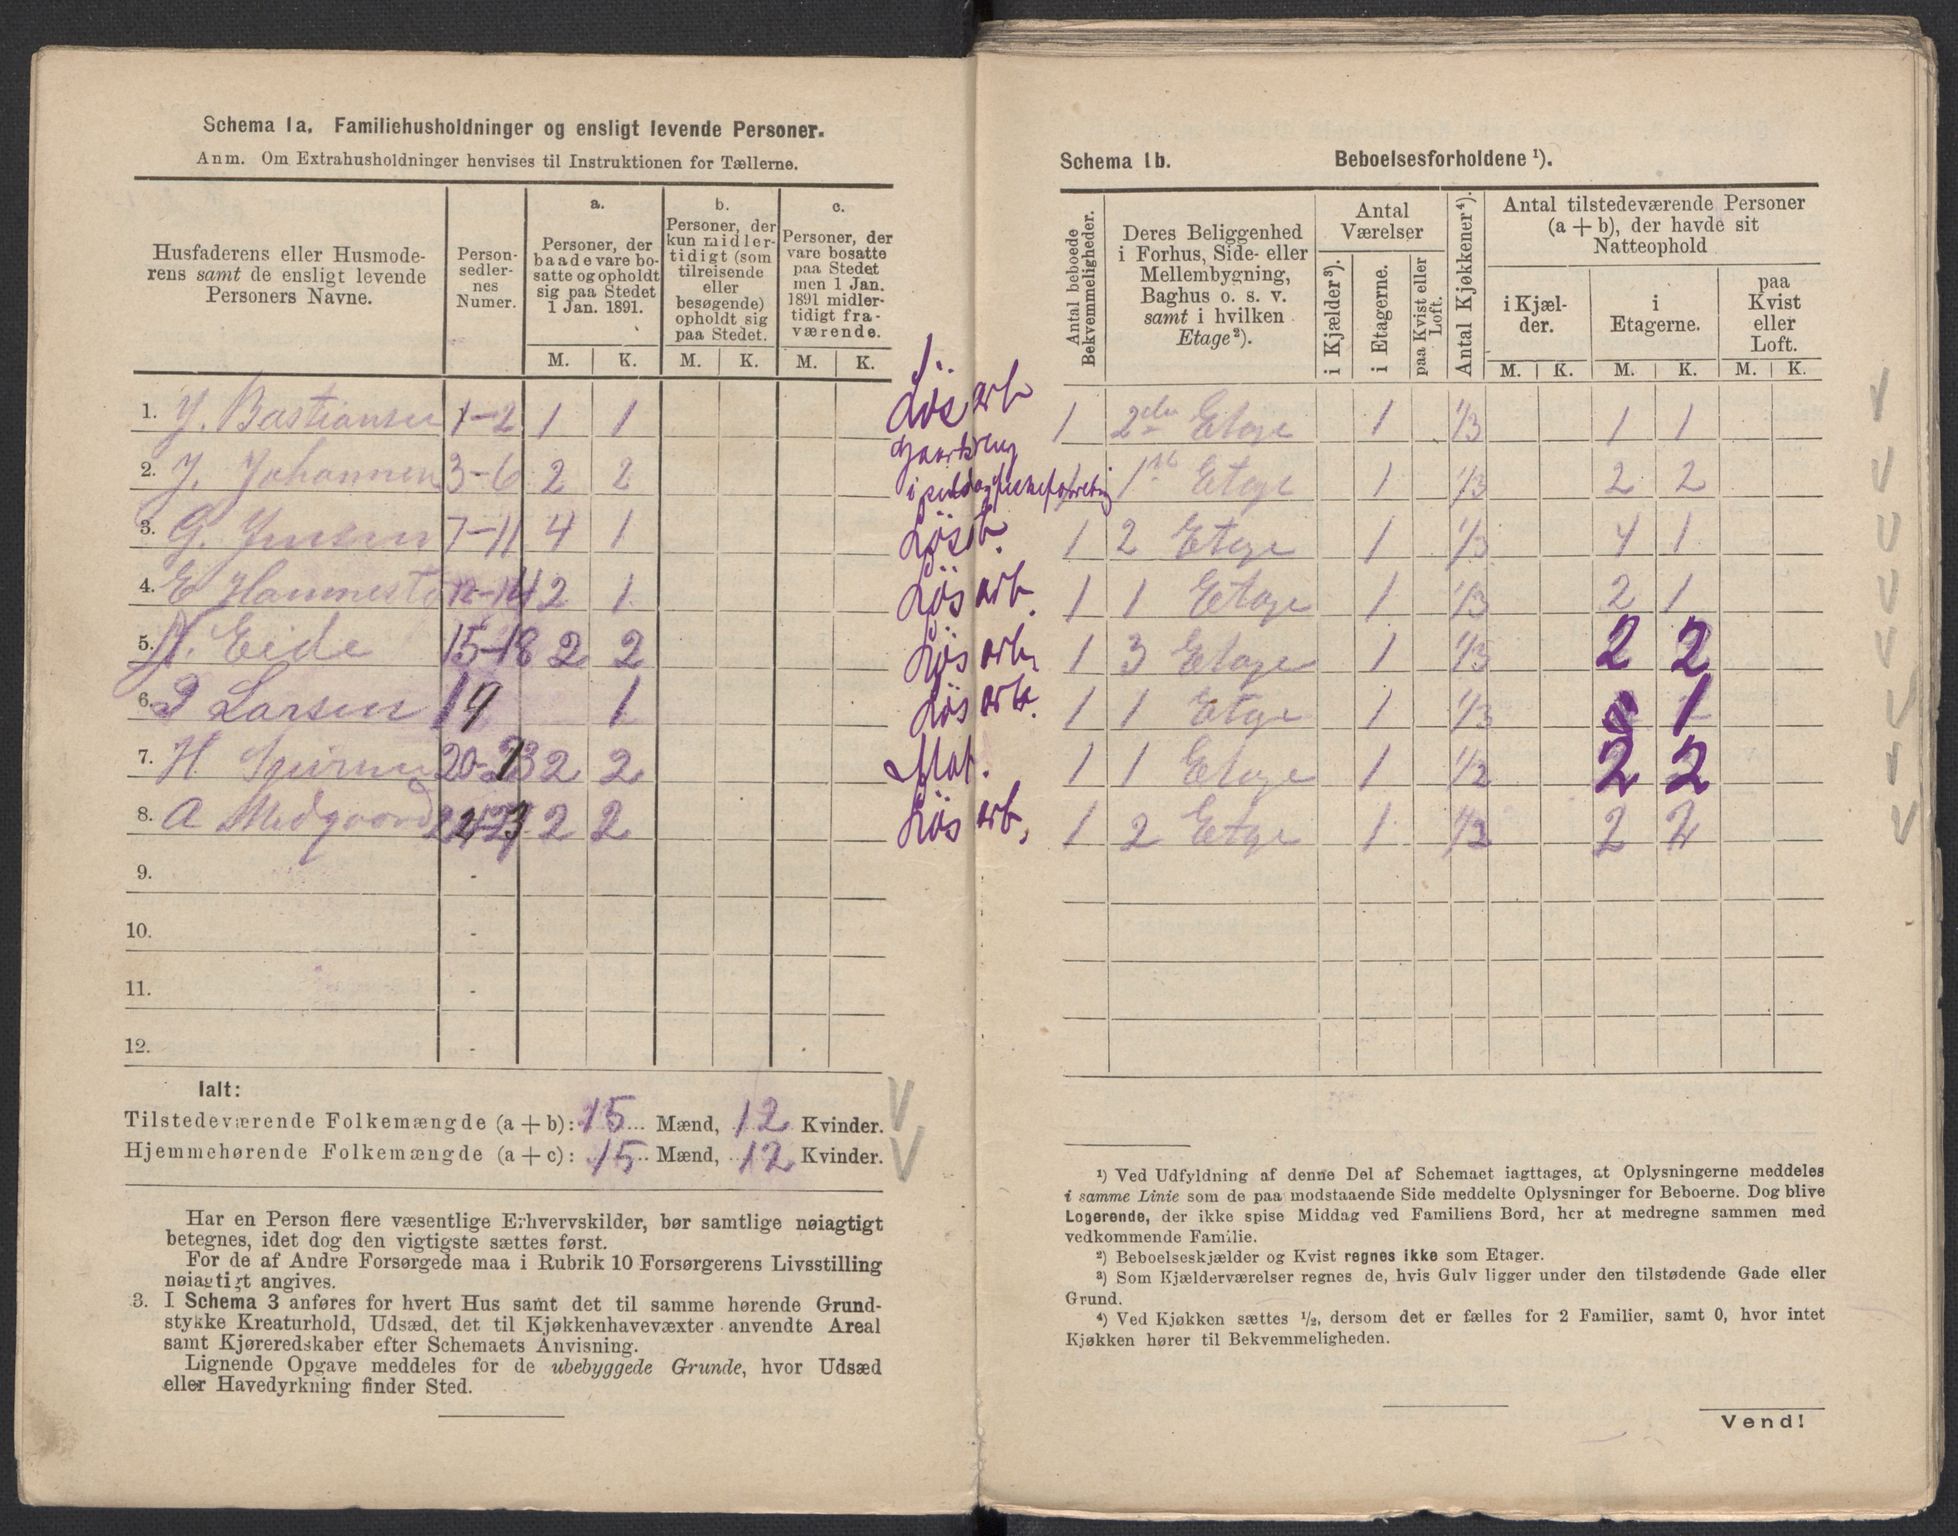 Schema 1a. Familiehusholdninger og ensligt levende Personer.
Anm. Om Extrahusholdninger henvises til Instruktionen for Tællerne.
Husfaderens eller Husmoderens samt de ensligt levende Personers Navne.
Personsedlernes Numer.
a.
Personer, der baade vare bosatte og opholdt sig paa Stedet 1 Jan. 1891.
b.
Personer, der kun midlertidigt (som tilreisende eller besøgende) opholdt sig paa Stedet.
c.
Personer, der vare bosatte paa Stedet men 1 Jan. 1891 midlertidigt fraværende.
M. K. M. K. M. K.
1. J. Bastiansen 1-2 1 1 Løsarb
2. J. Johannesen 3-6 2 2
3. G. Jensen 7-11 4 1 Løsarb.
4. E 12-14 2 1 Løsarb.
5. Eide 15-18 2 2 Løsarb.
6. Larsen 19 1 Løsarb.
7. H. 20-23 2 2
8. A Midgaard 24-27 2 2 Løsarb.
9.
10.
11.
12.
Ialt:
Tilstedeværende Folkemængde (a + b): 15 Mænd, 12 Kvinder. V
Hjemmehørende Folkemængde (a + c): 15 Mænd, 12 Kvinder. V
Har en Person flere væsentlige Erhvervskilder, bør samtlige nøiagtigt
betegnes, idet dog den vigtigste sættes først.
For de af Andre Forsørgede maa i Rubrik 10 Forsørgerens Livsstilling
nøiagtigt angives.
3. I Schema 3 anføres for hvert Hus samt det til samme hørende Grund-
stykke Kreaturhold, Udsæd, det til Kjøkkenhavevæxter anvendte Areal
samt Kjøreredskaber efter Schemaets Anvisning.
Lignende Opgave meddeles for de ubebyggede Grunde, hvor Udsæd
eller Havedyrkning finder Sted.
Schema 1b. Beboelsesforholdene ¹).
Antal beboede Bekvemmeligheder.
Deres Beliggenhed i Forhus, Side- eller Mellembygning, Baghus o. s. v. samt i hvilken Etage²).
Antal Værelser
i Kjælder³).
i Etagerne.
paa Kvist eller Loft.
Antal Kjøkkener⁴).
Antal tilstedeværende Personer (a + b), der havde sit Natteophold
i Kjælder.
i Etagerne.
paa Kvist eller Loft.
M. K. M. K. M. K.
1 2den Etage 1 1/3 1 1 V
1ste Etage 1 1/3 2 2 V
1 2 Etage 1 1/3 4 1 V
1 1 Etage 1 1/3 2 1 V
1 3 Etage 1 1/3 2 2 V
1 1 Etage 1 1/3 1 V
1 1 Etage 1 1/2 2 2 V
1 2 Etage 1 1/2 2 2 V
¹) Ved Udfyldning af denne Del af Schemaet iagttages, at Oplysningerne meddeles
i samme Linie som de paa modstaaende Side meddelte Oplysninger for Beboerne. Dog blive
Logerende, der ikke spise Middag ved Familiens Bord, her at medregne sammen med
vedkommende Familie.
²) Beboelseskjælder og Kvist regnes ikke som Etager.
³) Som Kjælderværelser regnes de, hvis Gulv ligger under den tilstødende Gade eller
Grund.
⁴) Ved Kjøkken sættes ½, dersom det er fælles for 2 Familier, samt 0, hvor intet
Kjøkken hører til Bekvemmeligheden.
Vend!